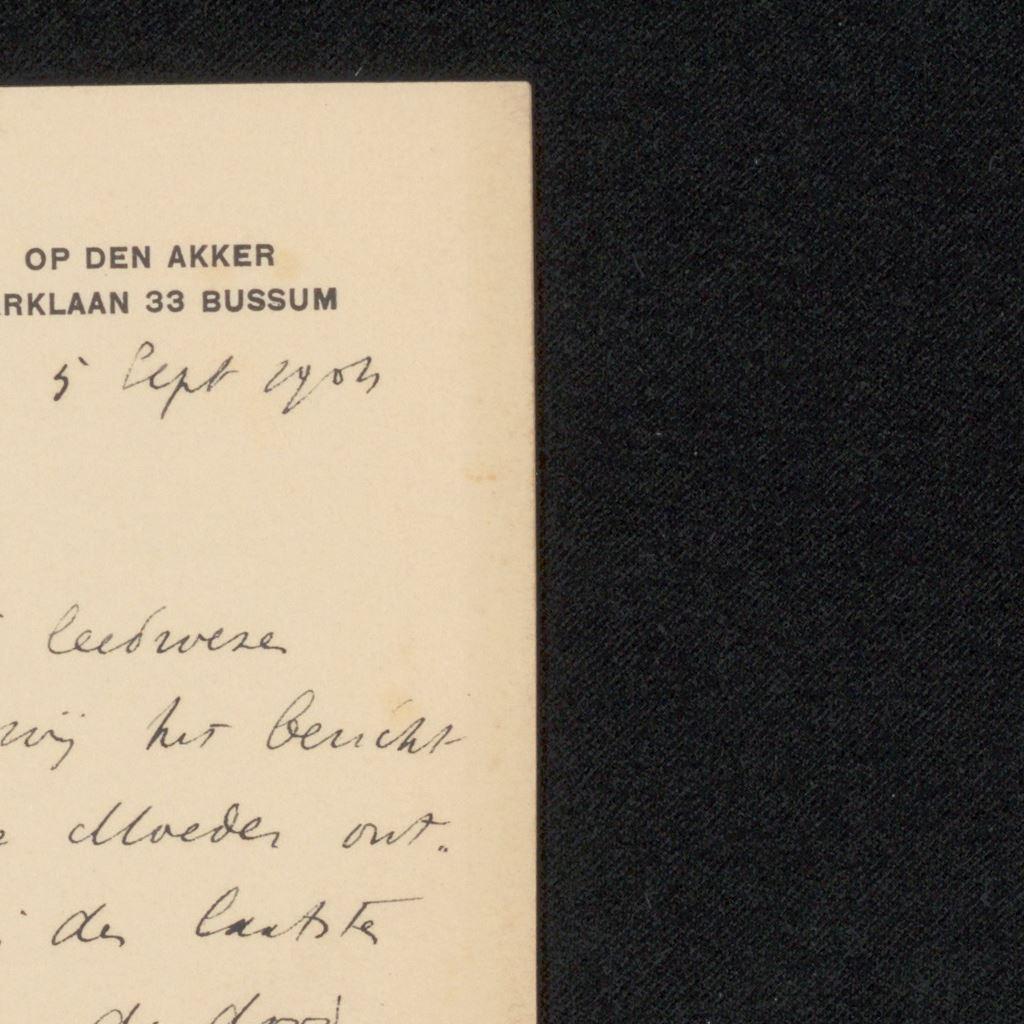 OP DEN AKKER
ARKLAAN 33 BUSSUM
5 Sept
leedweze
wij het bericht
Moeder ont„
der laatste
de dood